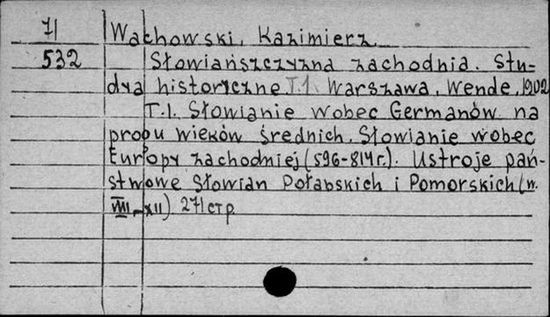 71 Wachowski, Kazimierz.
532 Słowiańszczyzna zachodnia. Stu-
dya historyczne T.1. Warszawa, Wende, 1902
T.I. Słowianie wobec Germanów na
progu wieków średnich. Słowianie wobec
Europy zachodniej (596-814 r.). Ustroje pań-
stwowe Słowian Połabskich i Pomorskich (w.
VIII-XII) 271 стр